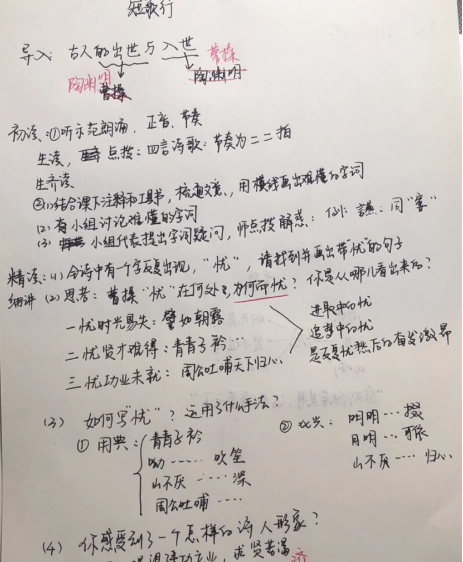 短歌行
导入：古人的出世与入世 曹操
陶渊明 曹操 陶渊明
初读：①听示范朗诵，正音、节奏
生读，点拨：四言诗歌：节奏为二二拍
生齐读
②(1)结合课下注释和工具书，梳通文意，用横线画出难懂的字词
(2)有小组讨论难懂的字词
(3)小组代表提出字词疑问，师点拨解惑：例：
精读：(1)全诗中有一个字反复出现，“忧”，请找到并画出带“忧”的句子
细讲 (2)思考：曹操“忧”在何处？为何而忧？你是从哪儿看出来的？
一忧时光易失：譬如朝露
二忧贤才难得：青青子衿
三忧功业未就：周公吐哺天下归心
进取中的忧
追梦中的忧
是忧然后的奋发激昂
(3) 如何写“忧”？运用了什么手法？
①用典：青青子衿
呦…… 吹笙
山不厌…… 深
周公吐哺……
②比兴：明明…掇
月明…
山不厌… 归心
(4) 你感受到了一个怎样的诗人形象？
渴望建功立业，求贤若渴